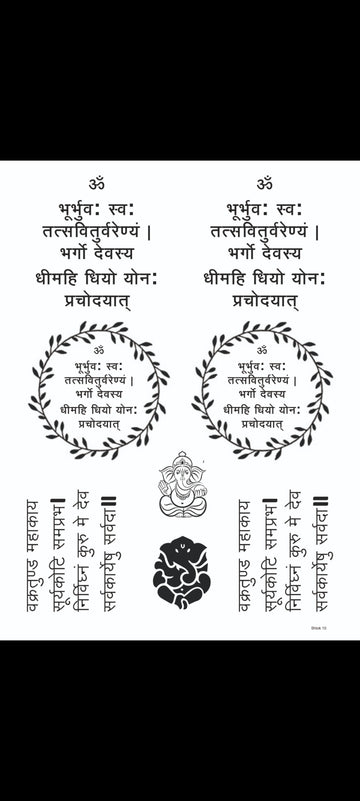 ॐ
भूर्भुव: स्व:
तत्सवितुर्वरेण्यं |
भर्गो देवस्य
धीमहि धियो योन:
प्रचोदयात्
ॐ
भूर्भुव: स्व:
तत्सवितुर्वरेण्यं |
भर्गो देवस्य
धीमहि धियो योन:
प्रचोदयात्
ॐ
भूर्भुव: स्व:
तत्सवितुर्वरेण्यं |
भर्गो देवस्य
धीमहि धियो योन:
प्रचोदयात्
ॐ
भूर्भुव: स्व:
तत्सवितुर्वरेण्यं |
भर्गो देवस्य
धीमहि धियो योन:
प्रचोदयात्
वक्रतुण्ड महाकाय
सूर्यकोटि समप्रभ।
निर्विघ्नं कुरु मे देव
सर्वकार्येषु सर्वदा॥
वक्रतुण्ड महाकाय
सूर्यकोटि समप्रभ।
निर्विघ्नं कुरु मे देव
सर्वकार्येषु सर्वदा॥